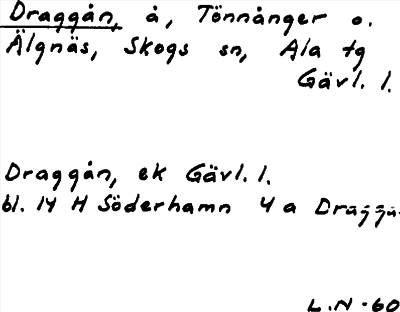 Draggån, å, Tönnånger o.
Älgnäs, Skogs sn, Ala tg
Gävl. l.
Draggån, ek Gävl. l.
bl. 14 H Söderhamn 4 a
L.N -60